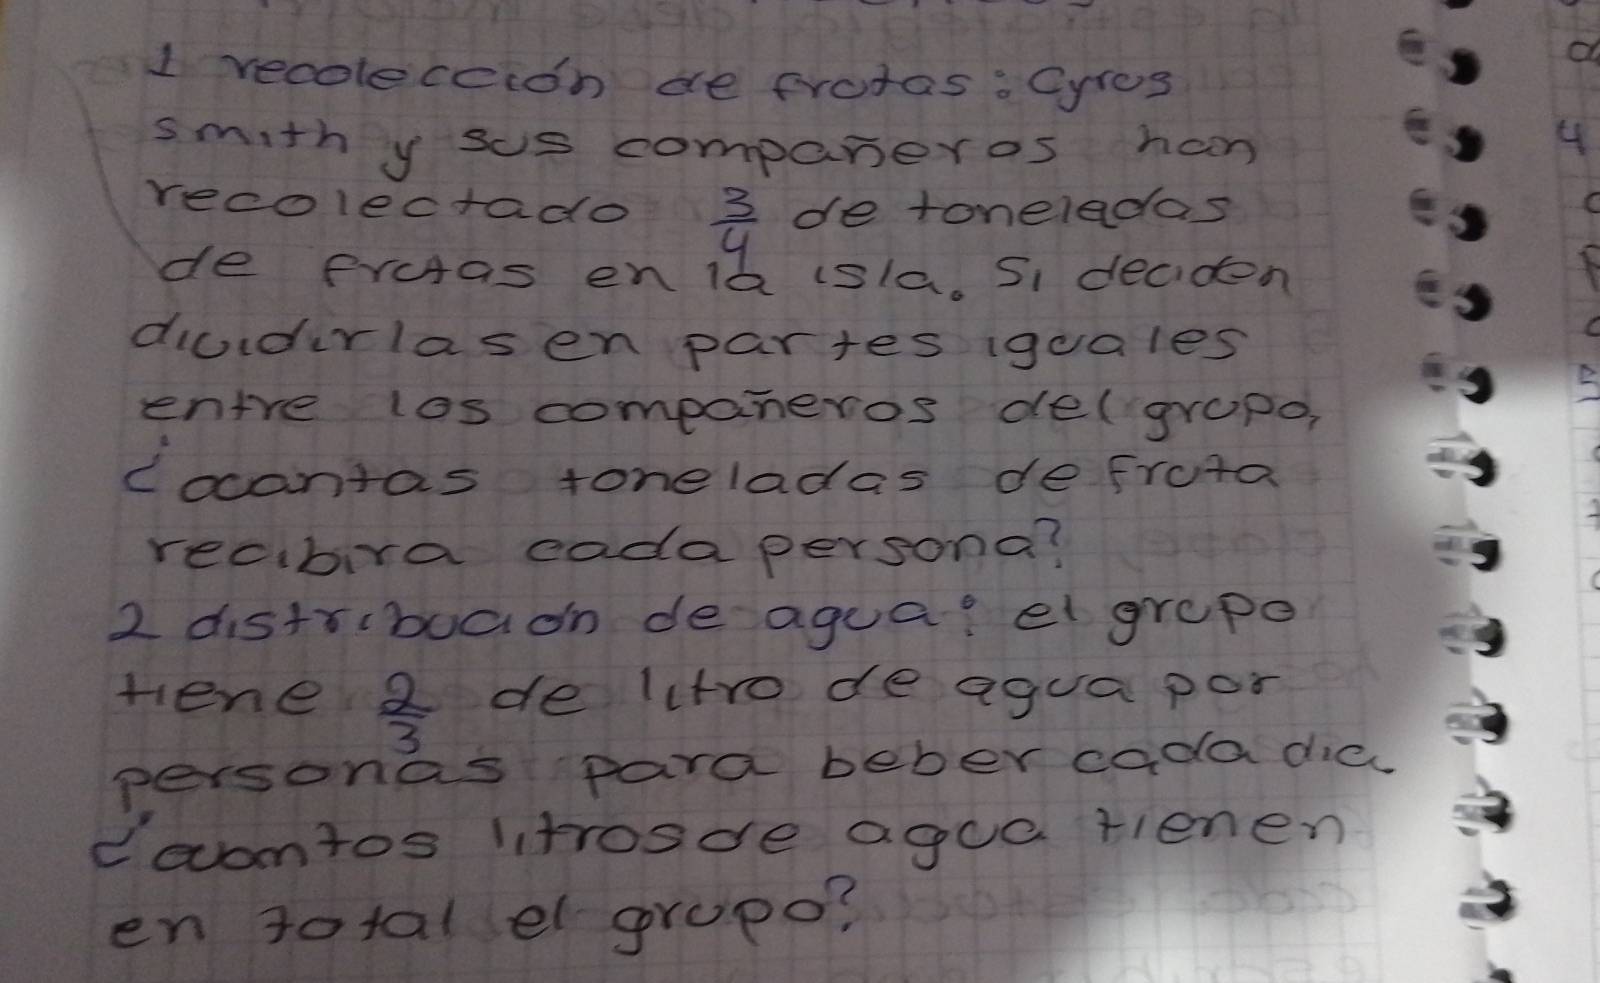 1 recolección de frutas: Cyrus
smith y sus compañeros han
recolectado 3/4 de toneladas
de frutas en la isla. Si deciden
dividirlas en partes iguales
entre los compañeros del grupo,
¿cuantas toneladas de fruta
recibira cada persona?
2 distribución de agua: el grupo
tiene 2/3 de litro de agua por
personas para beber cada dia.
¿cuantos litros de agua tienen
en total el grupo?